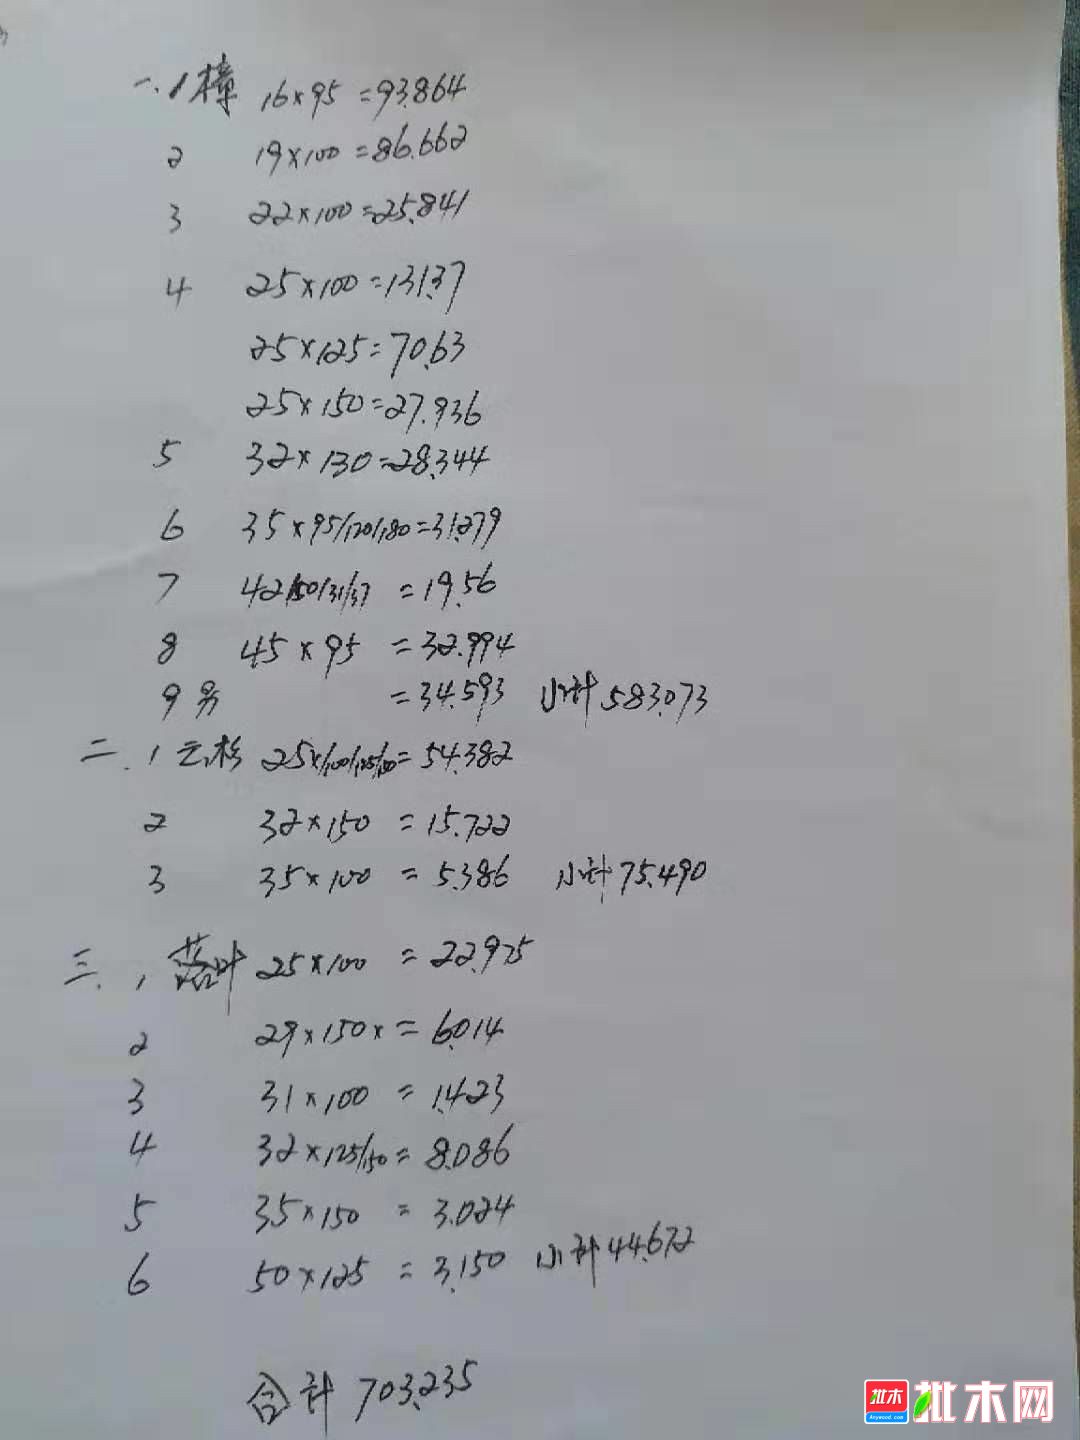 一.1樟 16×95 =93.864
2 19×100 =86.662
3 22×100 =25.841
4 25×100 =131.37
25×125 =70.63
25×150 =27.936
5 32×130 =28.344
6 35×95/120/180 =31.279
7 42 = 19.56
8 45×95 = 32.994
9 另 = 34.593 小计 583.073
二.1云杉 25×/100/125/150= 54.382
2 32×150 = 15.722
3 35×100 = 5.386 小计 75.490
三.1落叶 25×100 = 22.975
2 29×150× = 6.014
3 31×100 = 1.423
4 32×125/150 = 8.086
5 35×150 = 3.024
6 50×125 = 3.150 小计 44.672
合计 703.235
批木 Anywood.com 批木网